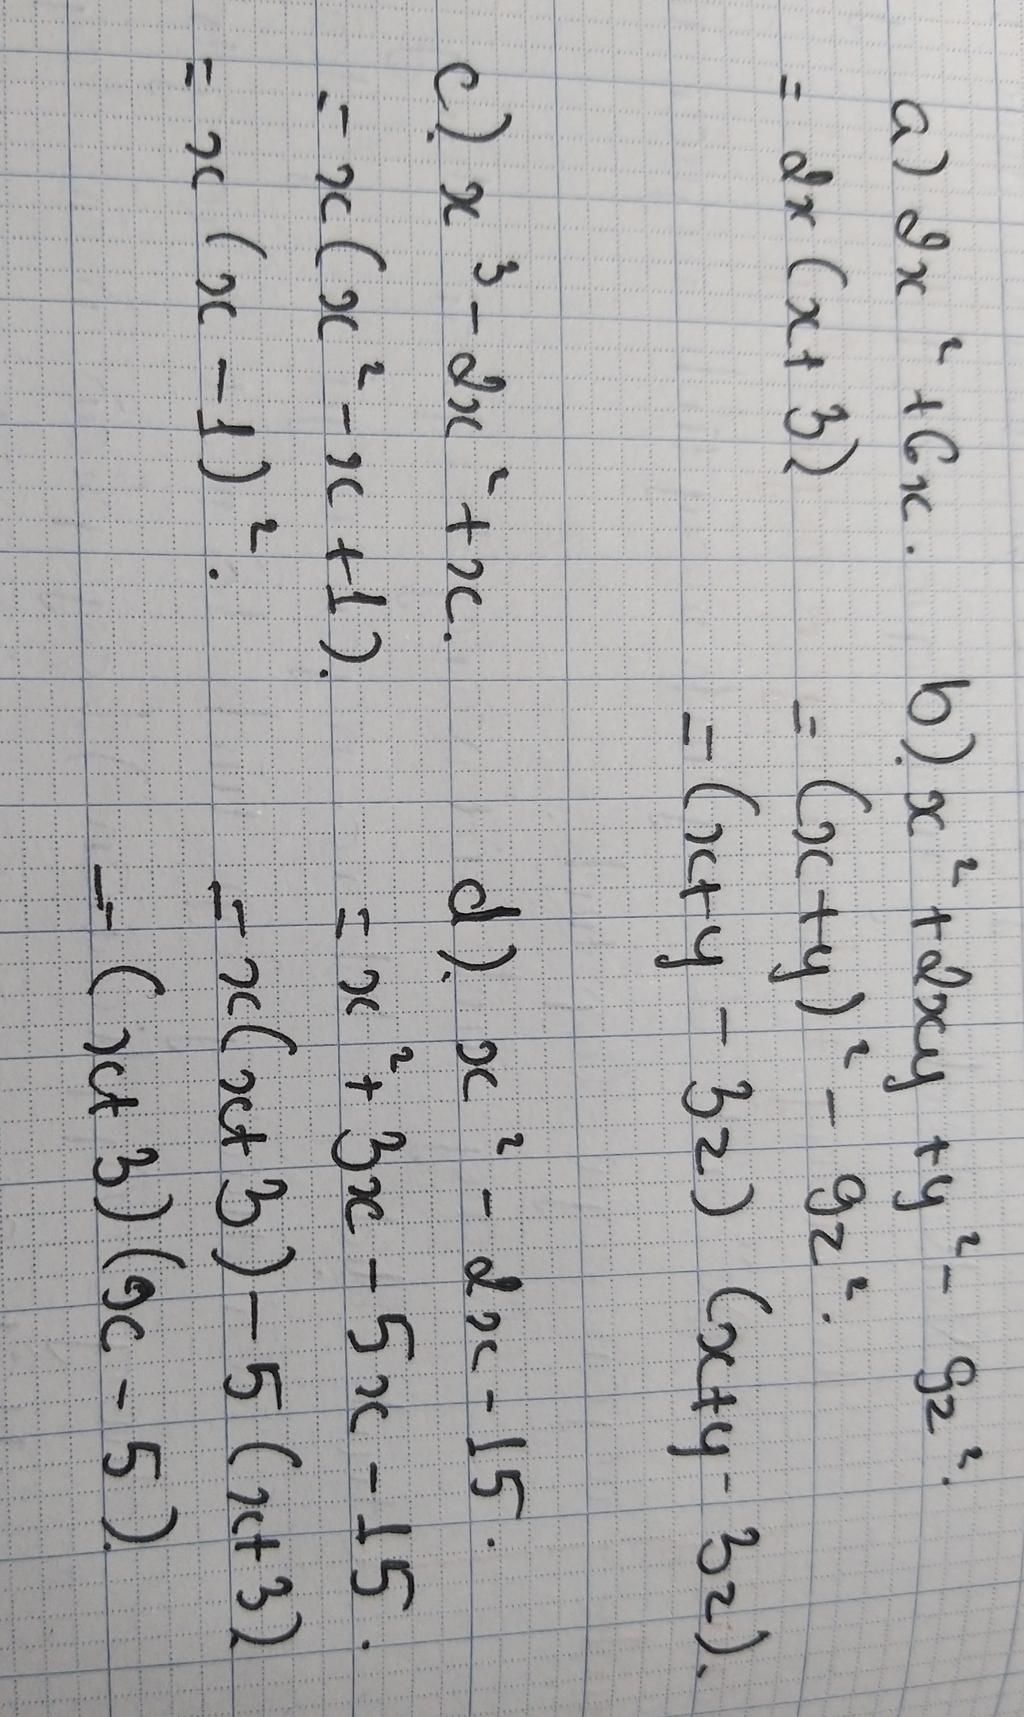 a) 2x² + 6x.
= 2x (x + 3)
b) x² + 2xy + y² - 9z².
= (x + y)² - 9z².
= (x + y - 3z) (x + y - 3z).
c) x³ - 2x² + x.
= x (x² - x + 1).
= x (x - 1)².
d) x² - 2x - 15.
= x² + 3x - 5x - 15.
= x (x + 3) - 5 (x + 3)
= (x + 3) (x - 5).